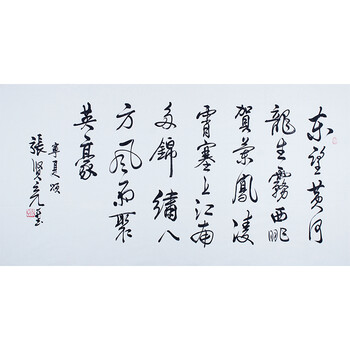 东望黄河
龍生霧西眺
賀蘭鳳凌
霄塞上江南
多錦繡八
方风雨聚
英豪
寧夏颂
張贤亮